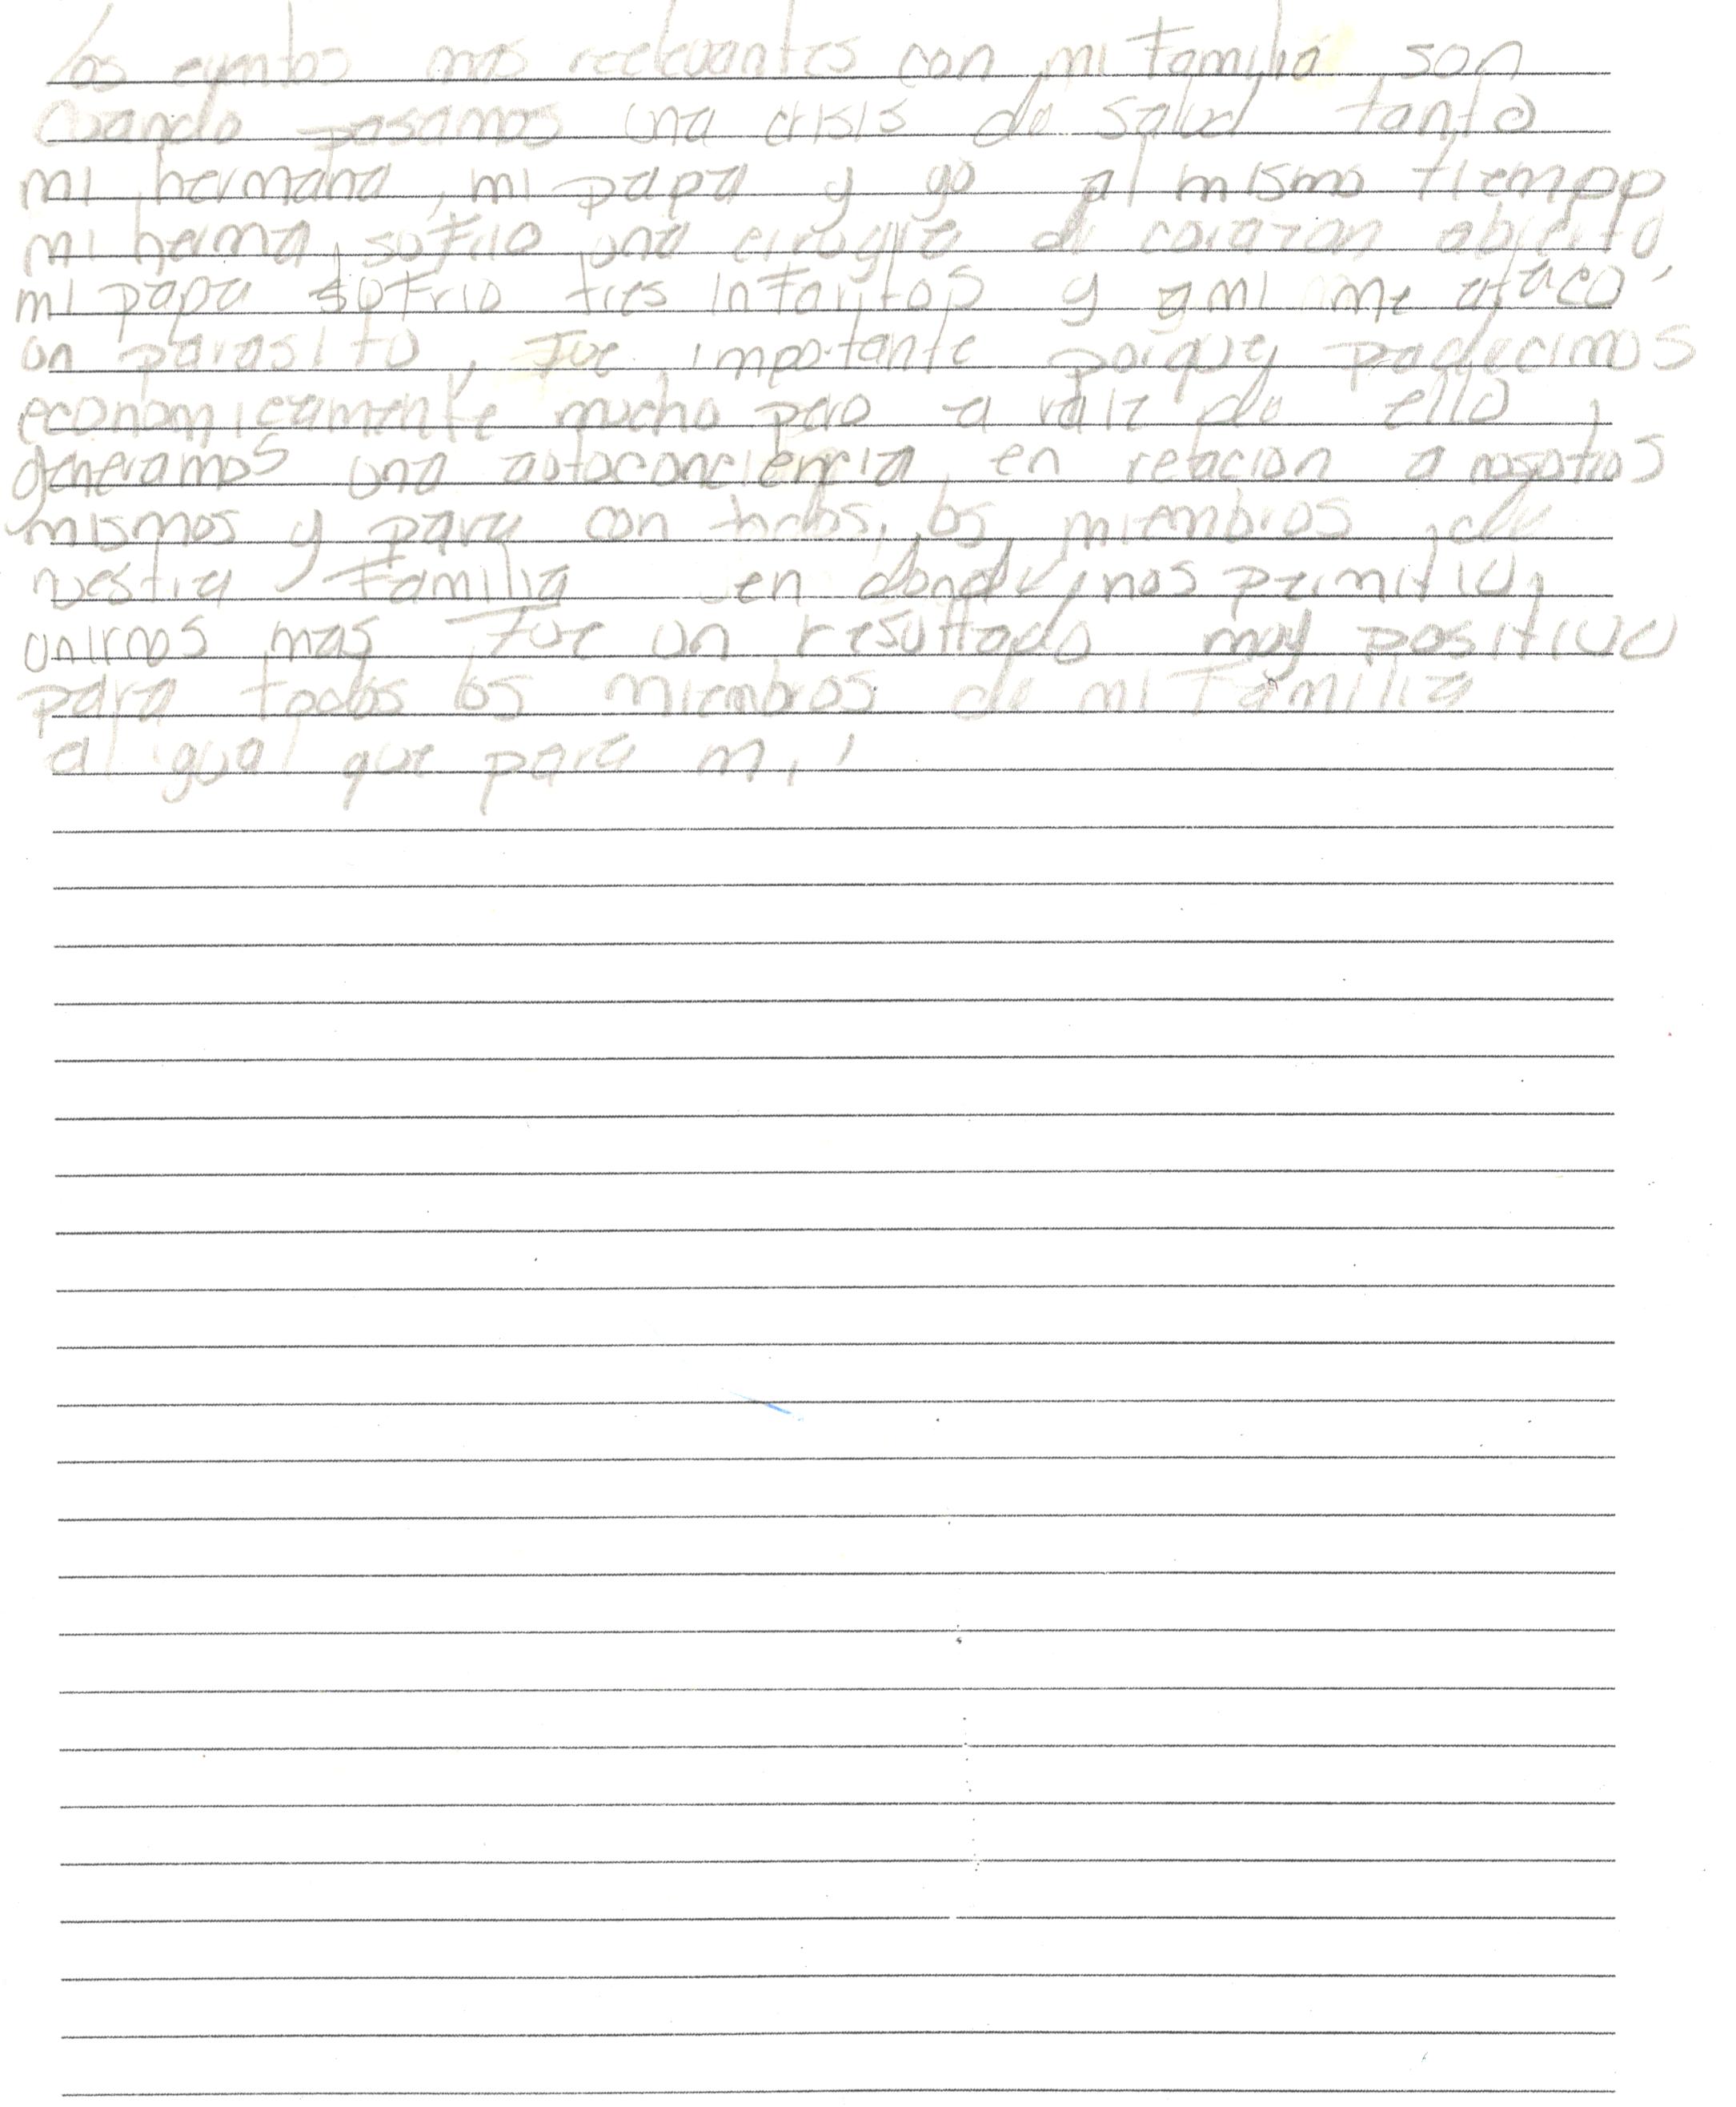 Los eventos mas relevantes con mi familia son
cuando pasamos una crisis de salud tanto
mi hermana, mi papa y yo al mismo tiempo
mi herma sufrio una cirugia de corazon abierto,
mi papa sufrio tres infartos y a mi me ataco
un parasito, Fue importante porque padecimos
economicamente mucho pero a raiz de ello,
generamos una autoconciencia en relacion a nosotros
mismos y para con todos los miembros de
nuestra familia en donde nos permitio
unirnos mas Fue un resultado muy positivo
para todos los miembros de mi familia
al igual que para mi